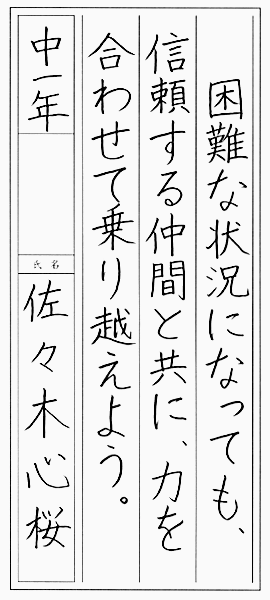 困難な状況になっても、
信頼する仲間と共に、力を
合わせて乗り越えよう。
中一年
氏名
佐々木心桜